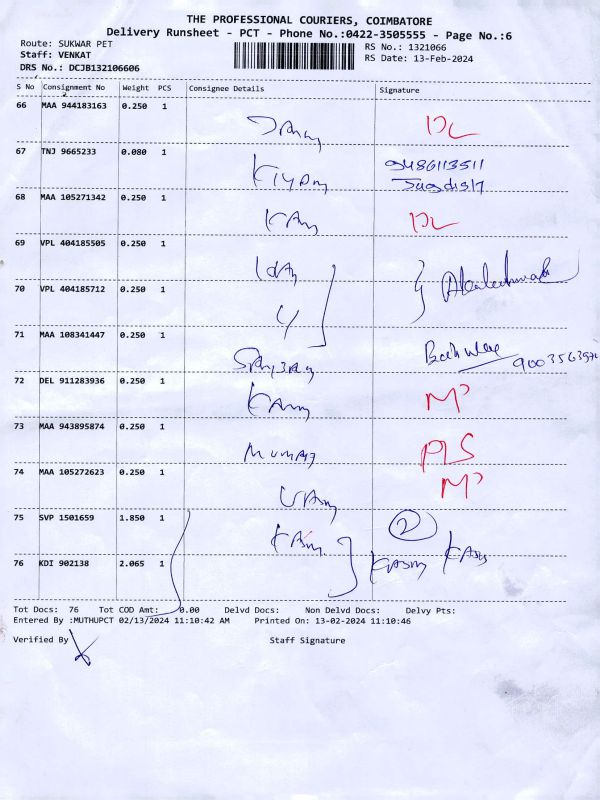 THE PROFESSIONAL COURIERS, COIMBATORE
Delivery Runsheet - PCT - Phone No.:0422-3505555 - Page No.:6
Route: SUKWAR PET
RS No.: 1321066
Staff: VENKAT
RS Date: 13-Feb-2024
DRS No.: DCJB132106606
S No Consignment No Weight PCS Consignee Details Signature
66 MAA 944183163 0.250 1
DL
67 TNJ 9665233 0.080 1
9486113511
68 MAA 105271342 0.250 1
DL
69 VPL 404185505 0.250 1
70 VPL 404185712 0.250 1
71 MAA 108341447 0.250 1
72 DEL 911283936 0.250 1
73 MAA 943895874 0.250 1
PLS
74 MAA 105272623 0.250 1
75 SVP 1501659 1.850 1
2
76 KDI 902138 2.065 1
Tot Docs: 76 Tot COD Amt: 0.00 Delvd Docs: Non Delvd Docs: Delvy Pts:
Entered By :MUTHUPCT 02/13/2024 11:10:42 AM Printed On: 13-02-2024 11:10:46
Verified By Staff Signature